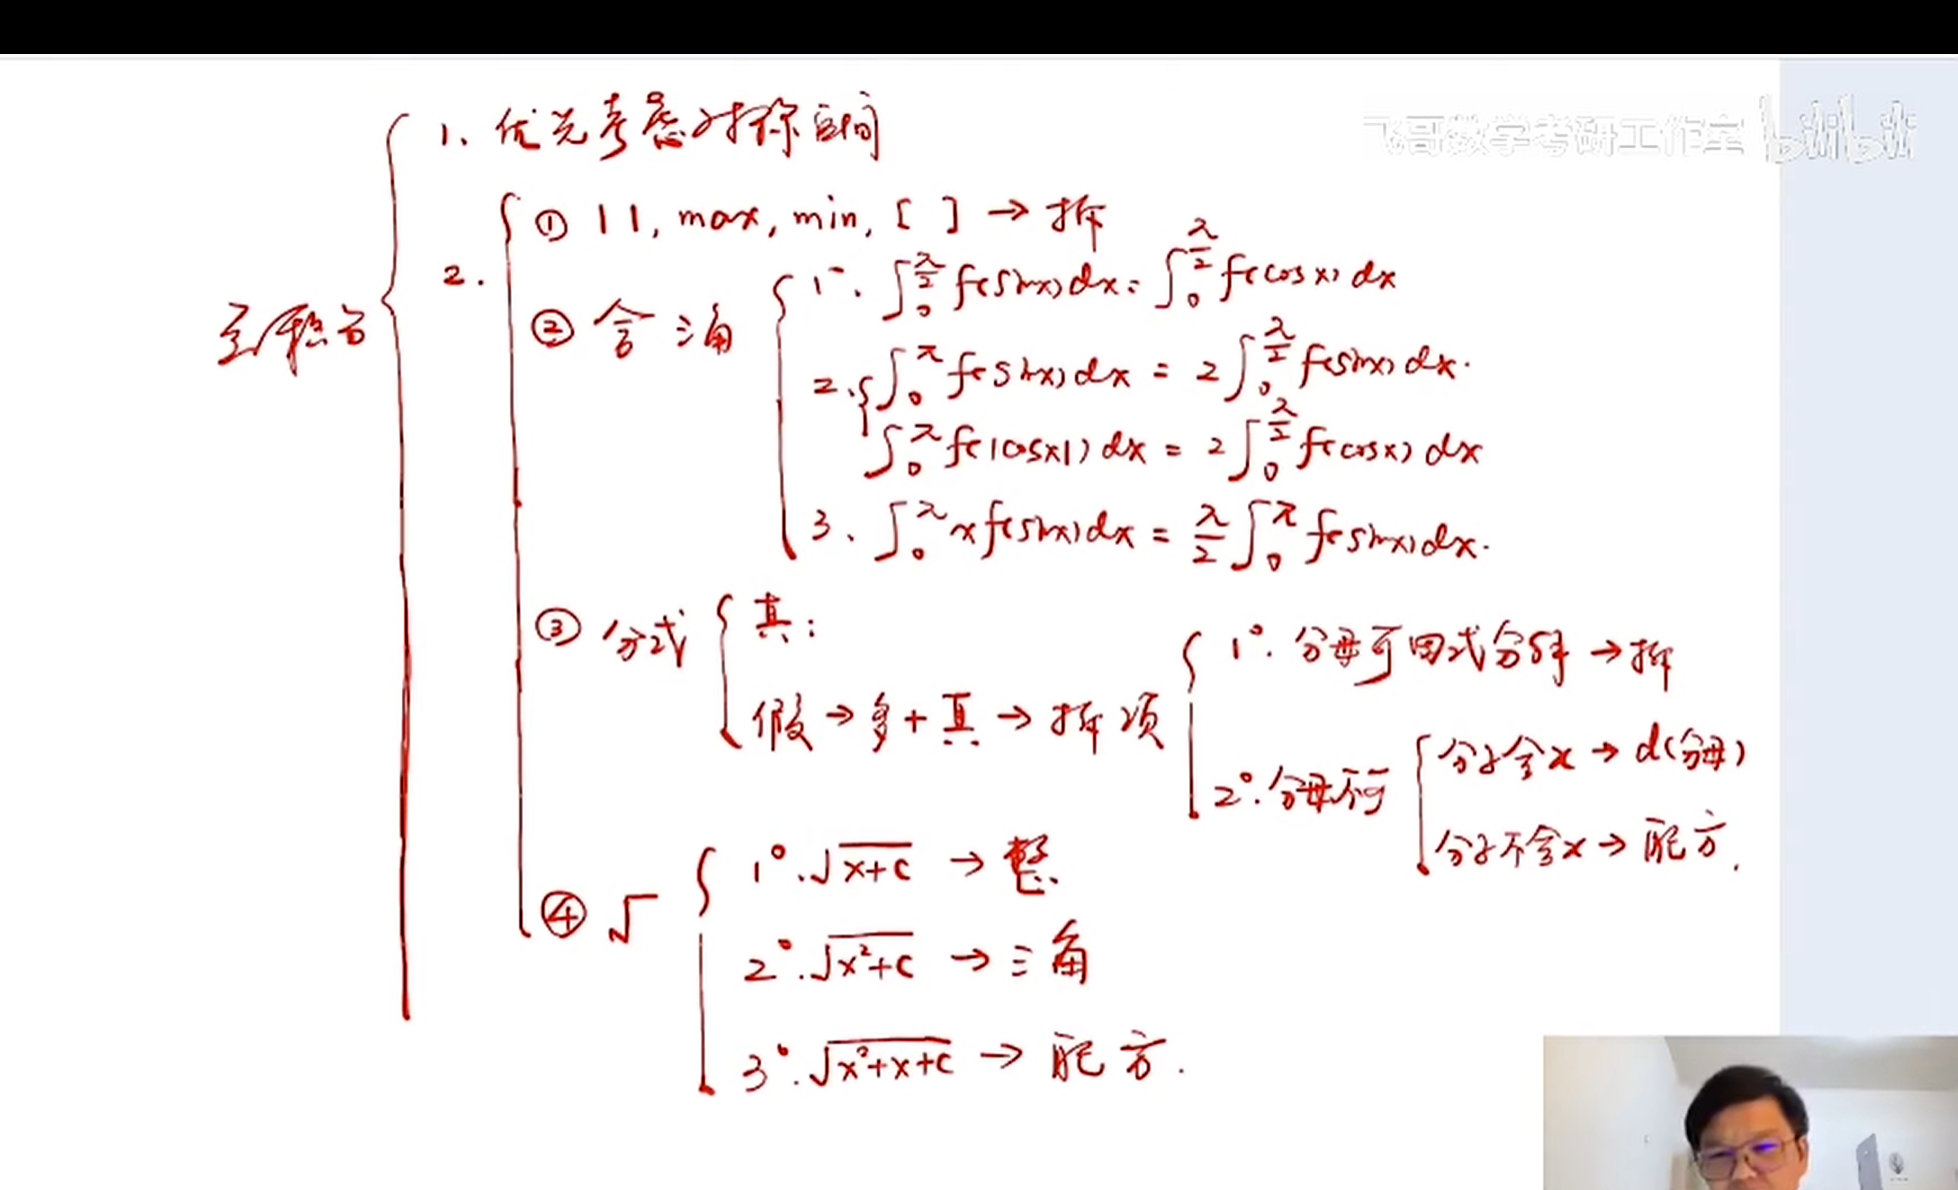 飞哥数学考研工作室 bilibili
定积分
1. 优先考虑对称区间
2.
① | |, max, min, [ ] → 拆
② 含三角
1. ∫₀^{π/2} f(sinx)dx = ∫₀^{π/2} f(cosx)dx
2. ∫₀^π f(sinx)dx = 2∫₀^{π/2} f(sinx)dx.
∫₀^π f(|cosx|)dx = 2∫₀^{π/2} f(cosx)dx
3. ∫₀^π xf(sinx)dx = π/2 ∫₀^π f(sinx)dx.
③ 分式
真:
假 → 多 + 真 → 拆项
1°. 分母可因式分解 → 拆
2°. 分母不可
分子含x → d(分母)
分子不含x → 配方.
④ √
1°. √(x+c) → 整
2°. √(x²+c) → 三角
3°. √(x²+x+c) → 配方.